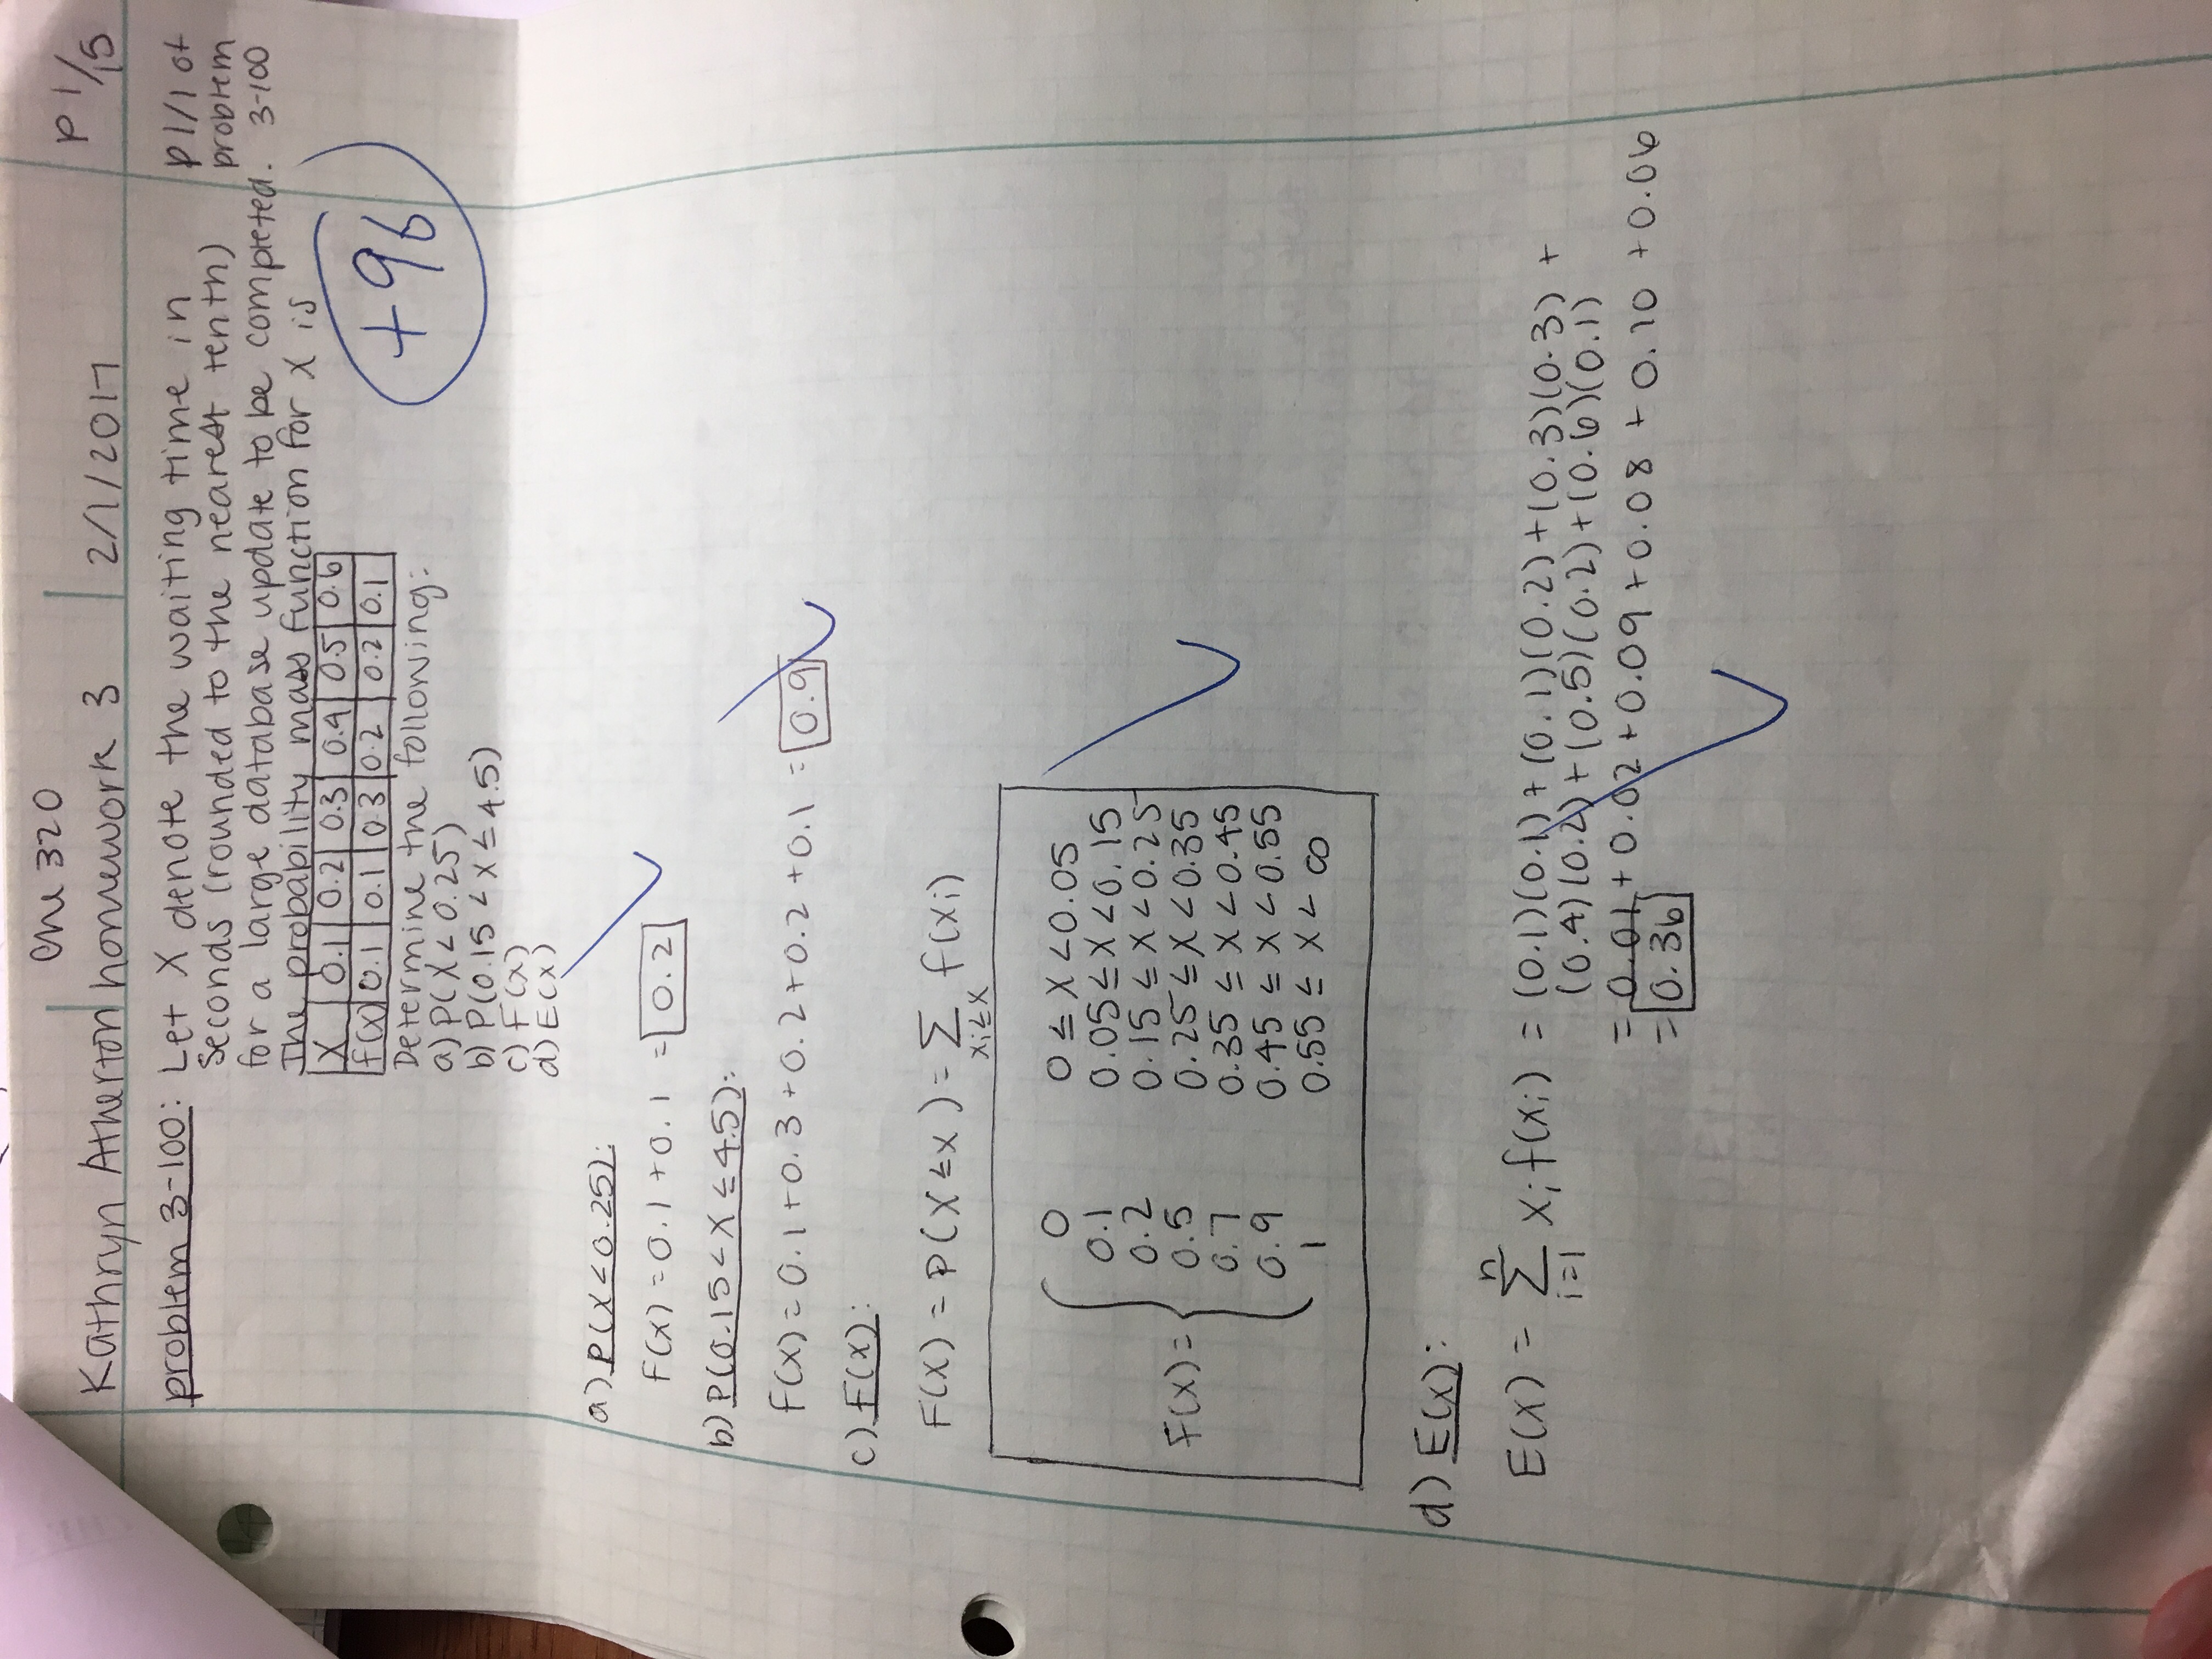 Che 320
Kathryn Atherton homework 3 2/1/2017 P 1/15
problem 3-100: Let X denote the waiting time in
seconds (rounded to the nearest tenth)
for a large database update to be completed.
The probability mass function for X is
p1/1 of
problem
3-100
X 0.1 0.2 0.3 0.4 0.5 0.6
f(x) 0.1 0.1 0.3 0.2 0.2 0.1
+96
Determine the following:
a) P(X < 0.25)
b) P(0.15 < X ≤ 4.5)
c) F(X)
d) E(X)
a) P(X < 0.25):
F(X) = 0.1 + 0.1 = 0.2
b) P(0.15 < X ≤ 4.5):
F(X) = 0.1 + 0.3 + 0.2 + 0.2 + 0.1 = 0.9
c) F(X):
F(X) = P(X ≤ x) = Σ f(xi)
xi ≤ x
0 0 ≤ X < 0.05
0.1 0.05 ≤ X < 0.15
0.2 0.15 ≤ X < 0.25
F(X) = { 0.5 0.25 ≤ X < 0.35
0.7 0.35 ≤ X < 0.45
0.9 0.45 ≤ X < 0.55
1 0.55 ≤ X < ∞
d) E(X):
n
E(X) = Σ xi f(xi) = (0.1)(0.1) + (0.1)(0.2) + (0.3)(0.3) +
i=1 (0.4)(0.2) + (0.5)(0.2) + (0.6)(0.1)
= 0.01 + 0.02 + 0.09 + 0.08 + 0.10 + 0.06
= 0.36